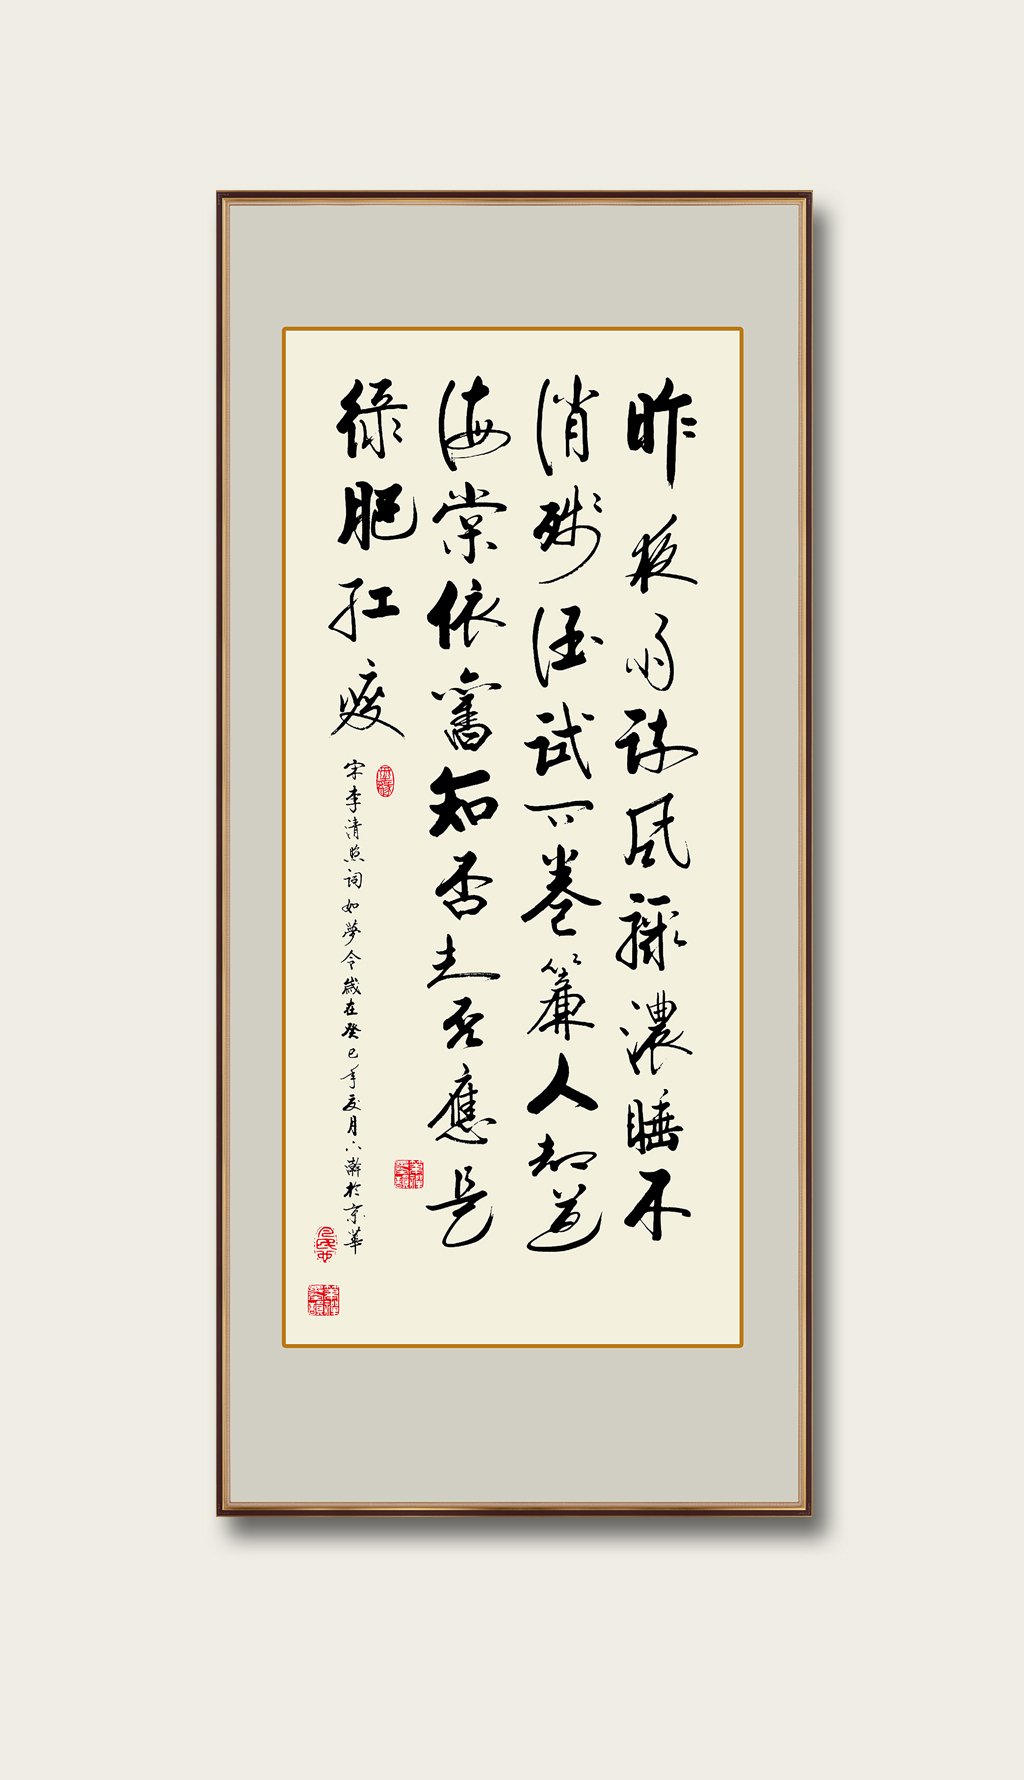 昨夜雨疎風驟濃睡不
消殘酒試問卷簾人却道
海棠依舊知否知否應是
綠肥紅瘦
宋李清照詞如夢令歲在癸巳年夏月六瀚於京華